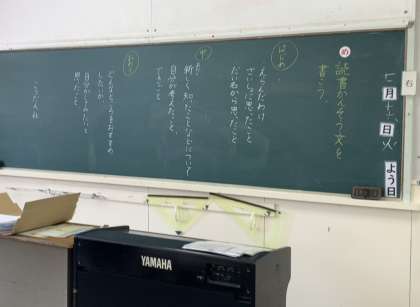 右
月
日
火
よう日
め
読書かんそう文を
書こう。
はじめ
えらんだわけ
さいしょに思ったこと
だい名から思ったこと
中
新しく知ったことなどについて
自分が考えたこと、
できごと
おわり
どんなところをおすすめ
したいか
自分がしてみたいと
思ったこと
YAMAHA